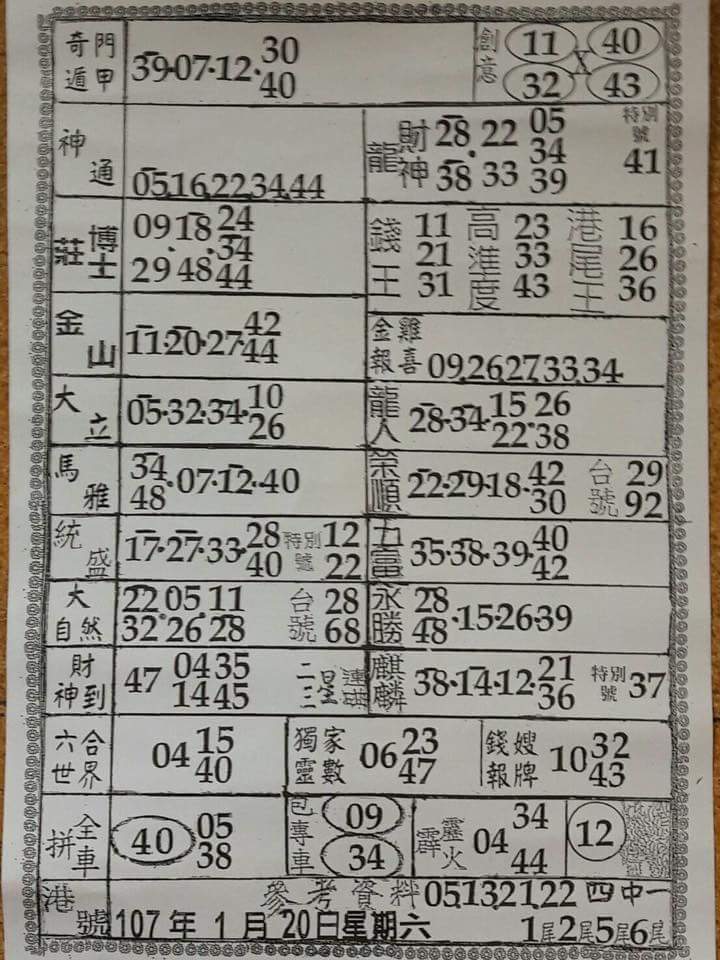 奇門遁甲 39·07·12·30 40
創意 11 X 40 32 43
神通 05,16,22,34,44
龍 財神 28·22 05 34 38 33 39 特別號 41
莊博士 09·18·24 34 29 48 44
錢王 11 21 31 高進度 23 33 43 港尾王 16 26 36
金山 11·20·27·42 44
金雞報喜 09,26,27,33,34
大立 05·32·34·10 26
龍人 28·34·15 26 22·38
馬雅 34 48·07·12·40
榮順 22·29·18·42 30 台號 29 92
統盛 17·27·33·28 40 特別號 12 22
五富 35·38·39·40 42
大自然 22 05 11 32·26·28 台號 28 68
永勝 28 48·15·26·39
財神到 47 04 35 14 45 二三星連碰
麒麟 38·14·12·21 36 特別號 37
六合世界 04 15 40
獨家靈數 06 23 47
錢嫂報牌 10 32 43
全車拼 40 05 38
包專車 09 34
霹靂火 04 34 44
12
港號 參考資料 05,13,21,22 四中一
107年 1月 20日星期六 1尾2尾5尾6尾